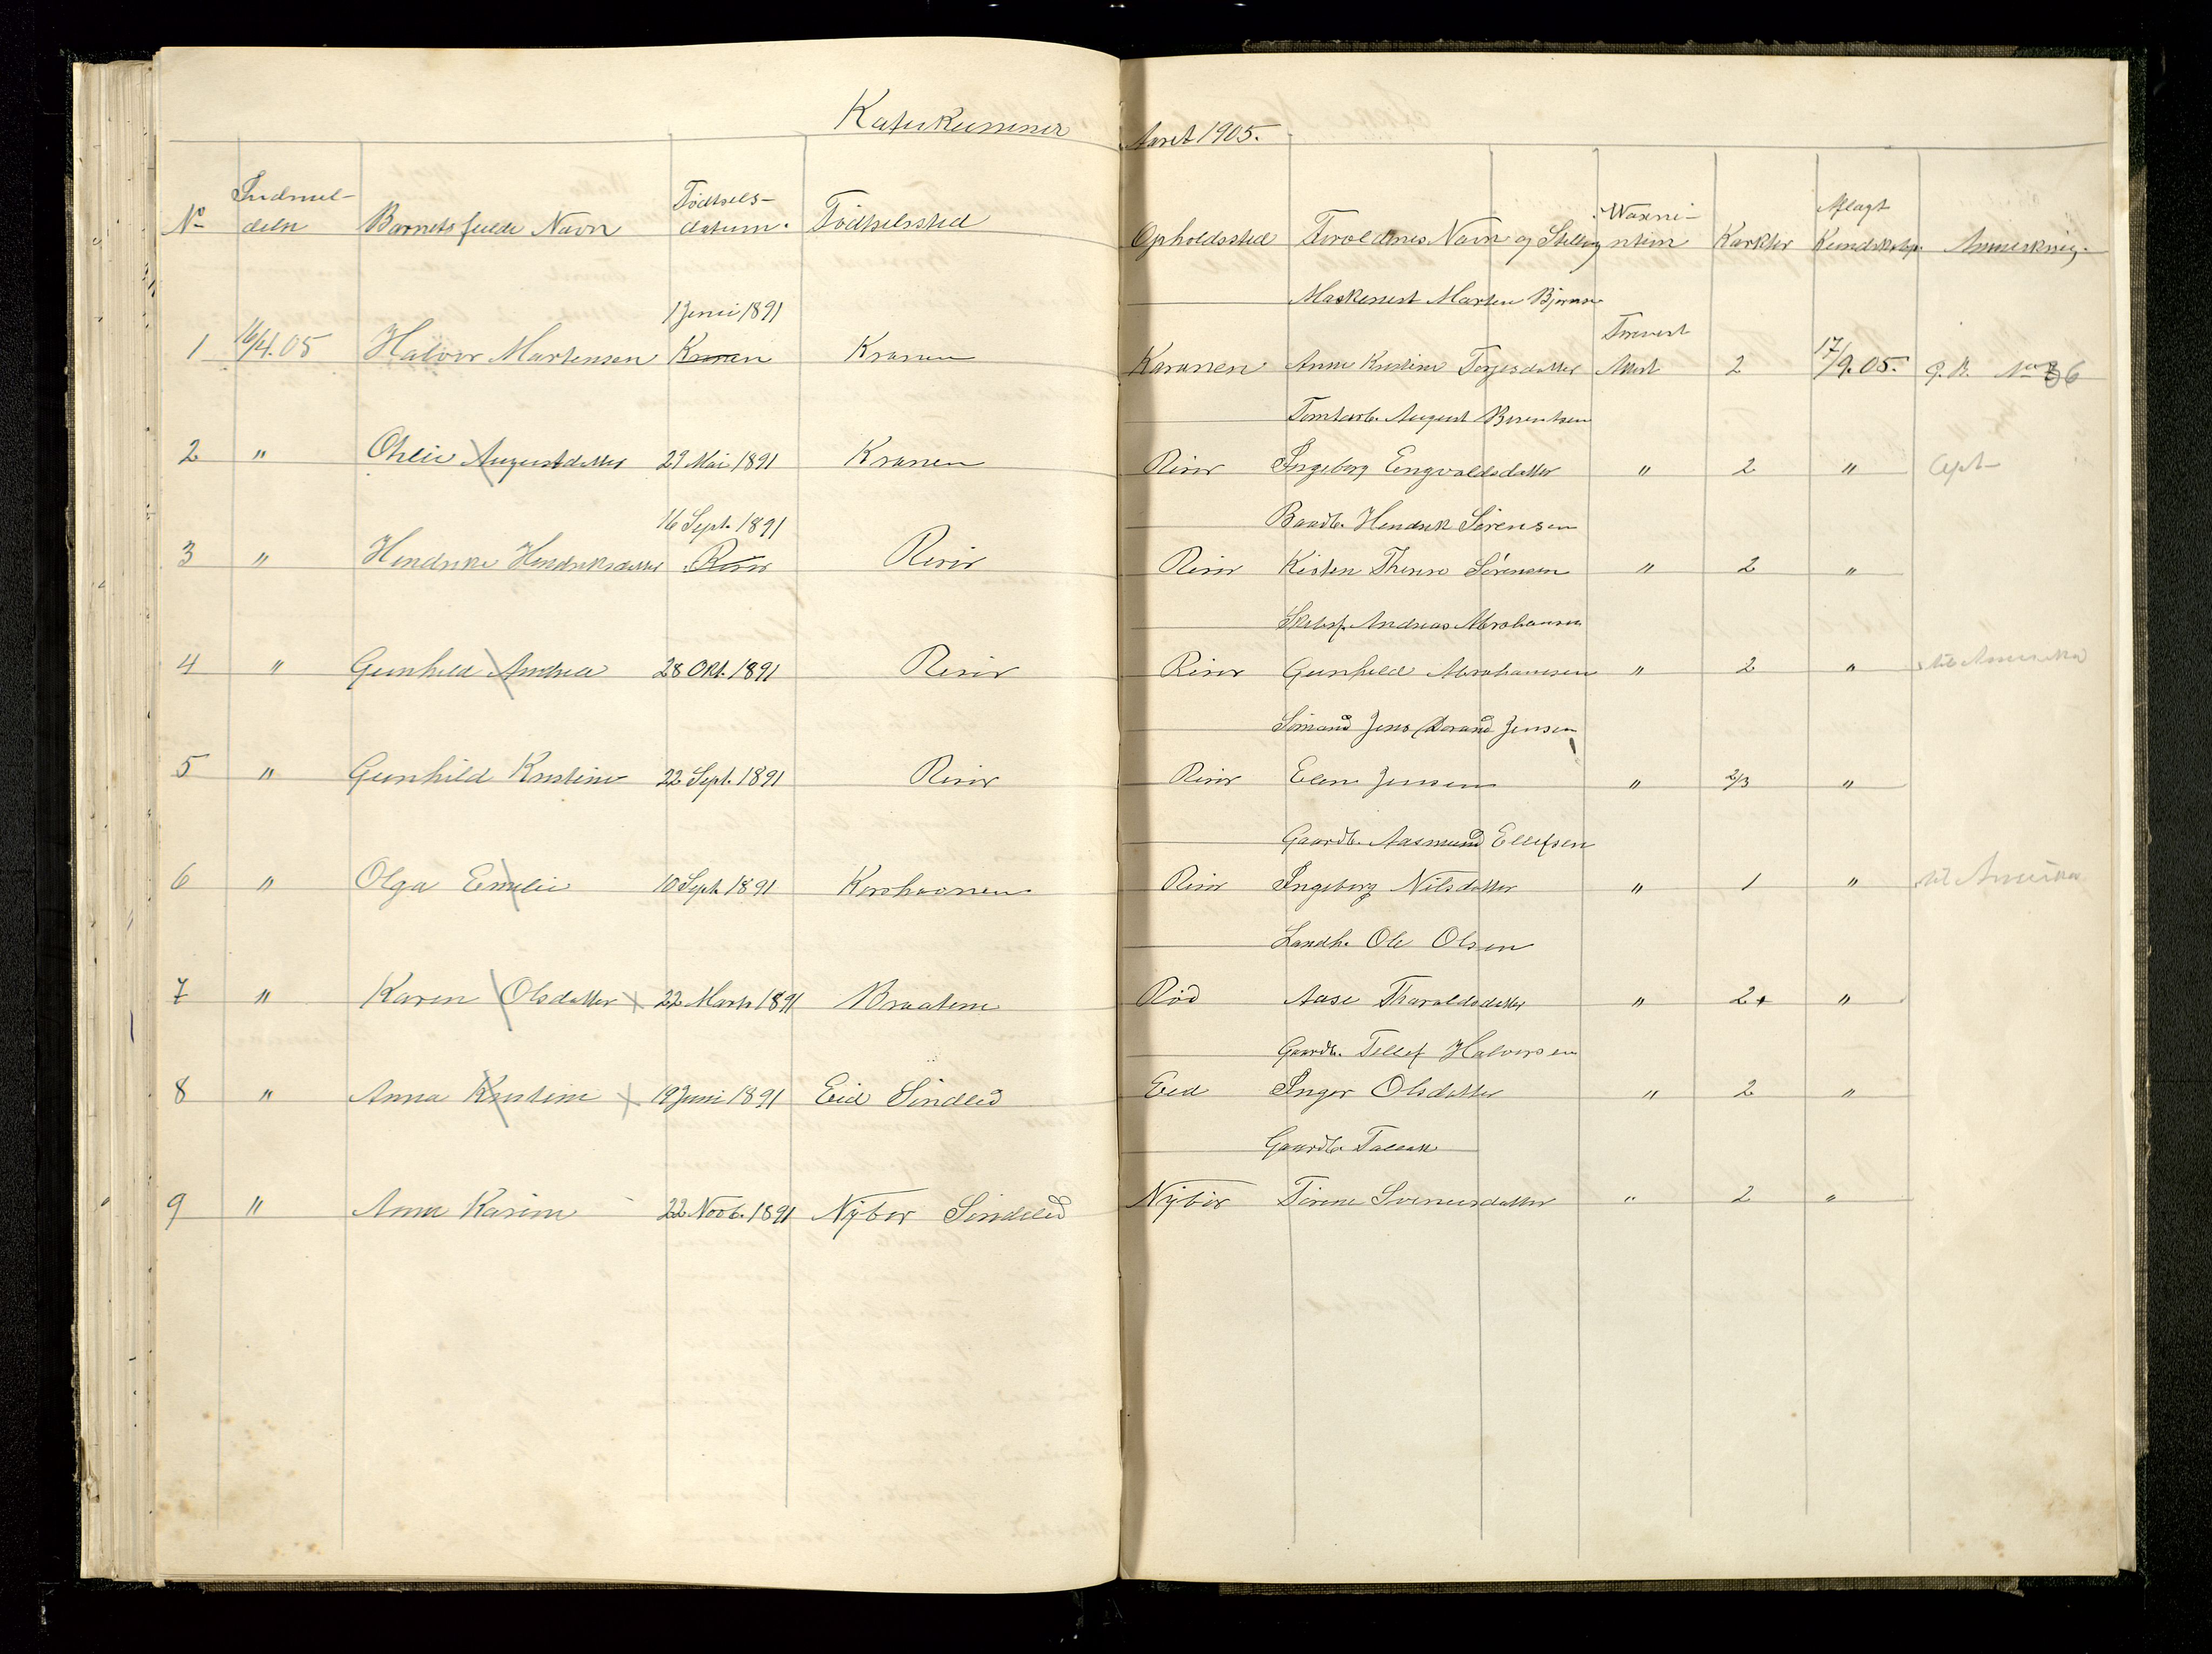 Katekumener Aaret 1905.
No Indmeldelse Barnets fulde Navn Fødselsdatum. Fødselssted Opholdssted Forældrenes Navn og Stilling Vaxination Karkter Aflagt Kundskabsp. Anmerkning
1 Juni 1891 Maskenist Marten Bjørnsen
1 16/4.05 Halvor Martensen Kranen Kranen Karanen Anna Kristine Torjesdatter Attest 2 17/9.05. No 6
Tomtarb. August Berentsen
2 " Othlie Augustdatter 29 Mai 1891 Kranen Risør Ingeborg Engvoldsdatter " 2 "
16 Sept. 1891 Baadb. Hendrik Sørensen
3 " Hendrike Hendriksdatter Risør Risør Risør Kisten Therese Sørensen " 2 "
Skibsf. Andreas Abrahamsen
4 " Gunhild Andrea 28 Okt. 1891 Risør Risør Gunhild Abrahamsen " 2 " til Amerika
Sømand Jens Jensen
5 " Gunhild Kristine 22 Sept. 1891 Risør Risør Elen Jensen " 2/3 "
Gaardb. Aasmund Ellefsen
6 " Olga Emelie 10 Sept. 1891 Risør Ingeborg Nilsdatter " 1 " til Amerika
Landh. Ole Olsen
7 " Karen Olsdatter x 22 Marts 1891 Braaten Rød Aase Tharaldsdatter " 2+ "
Gaardb. Tellef Halvorsen
8 " Anna Kristine x 19 Juni 1891 Eid Søndeled Eid Inger Olsdatter " 2 "
Gaardb. Tallak
9 " Anne Karine 22 Novb. 1891 Nybør Søndeled Nybør Tirene Svenusdatter " 2 "